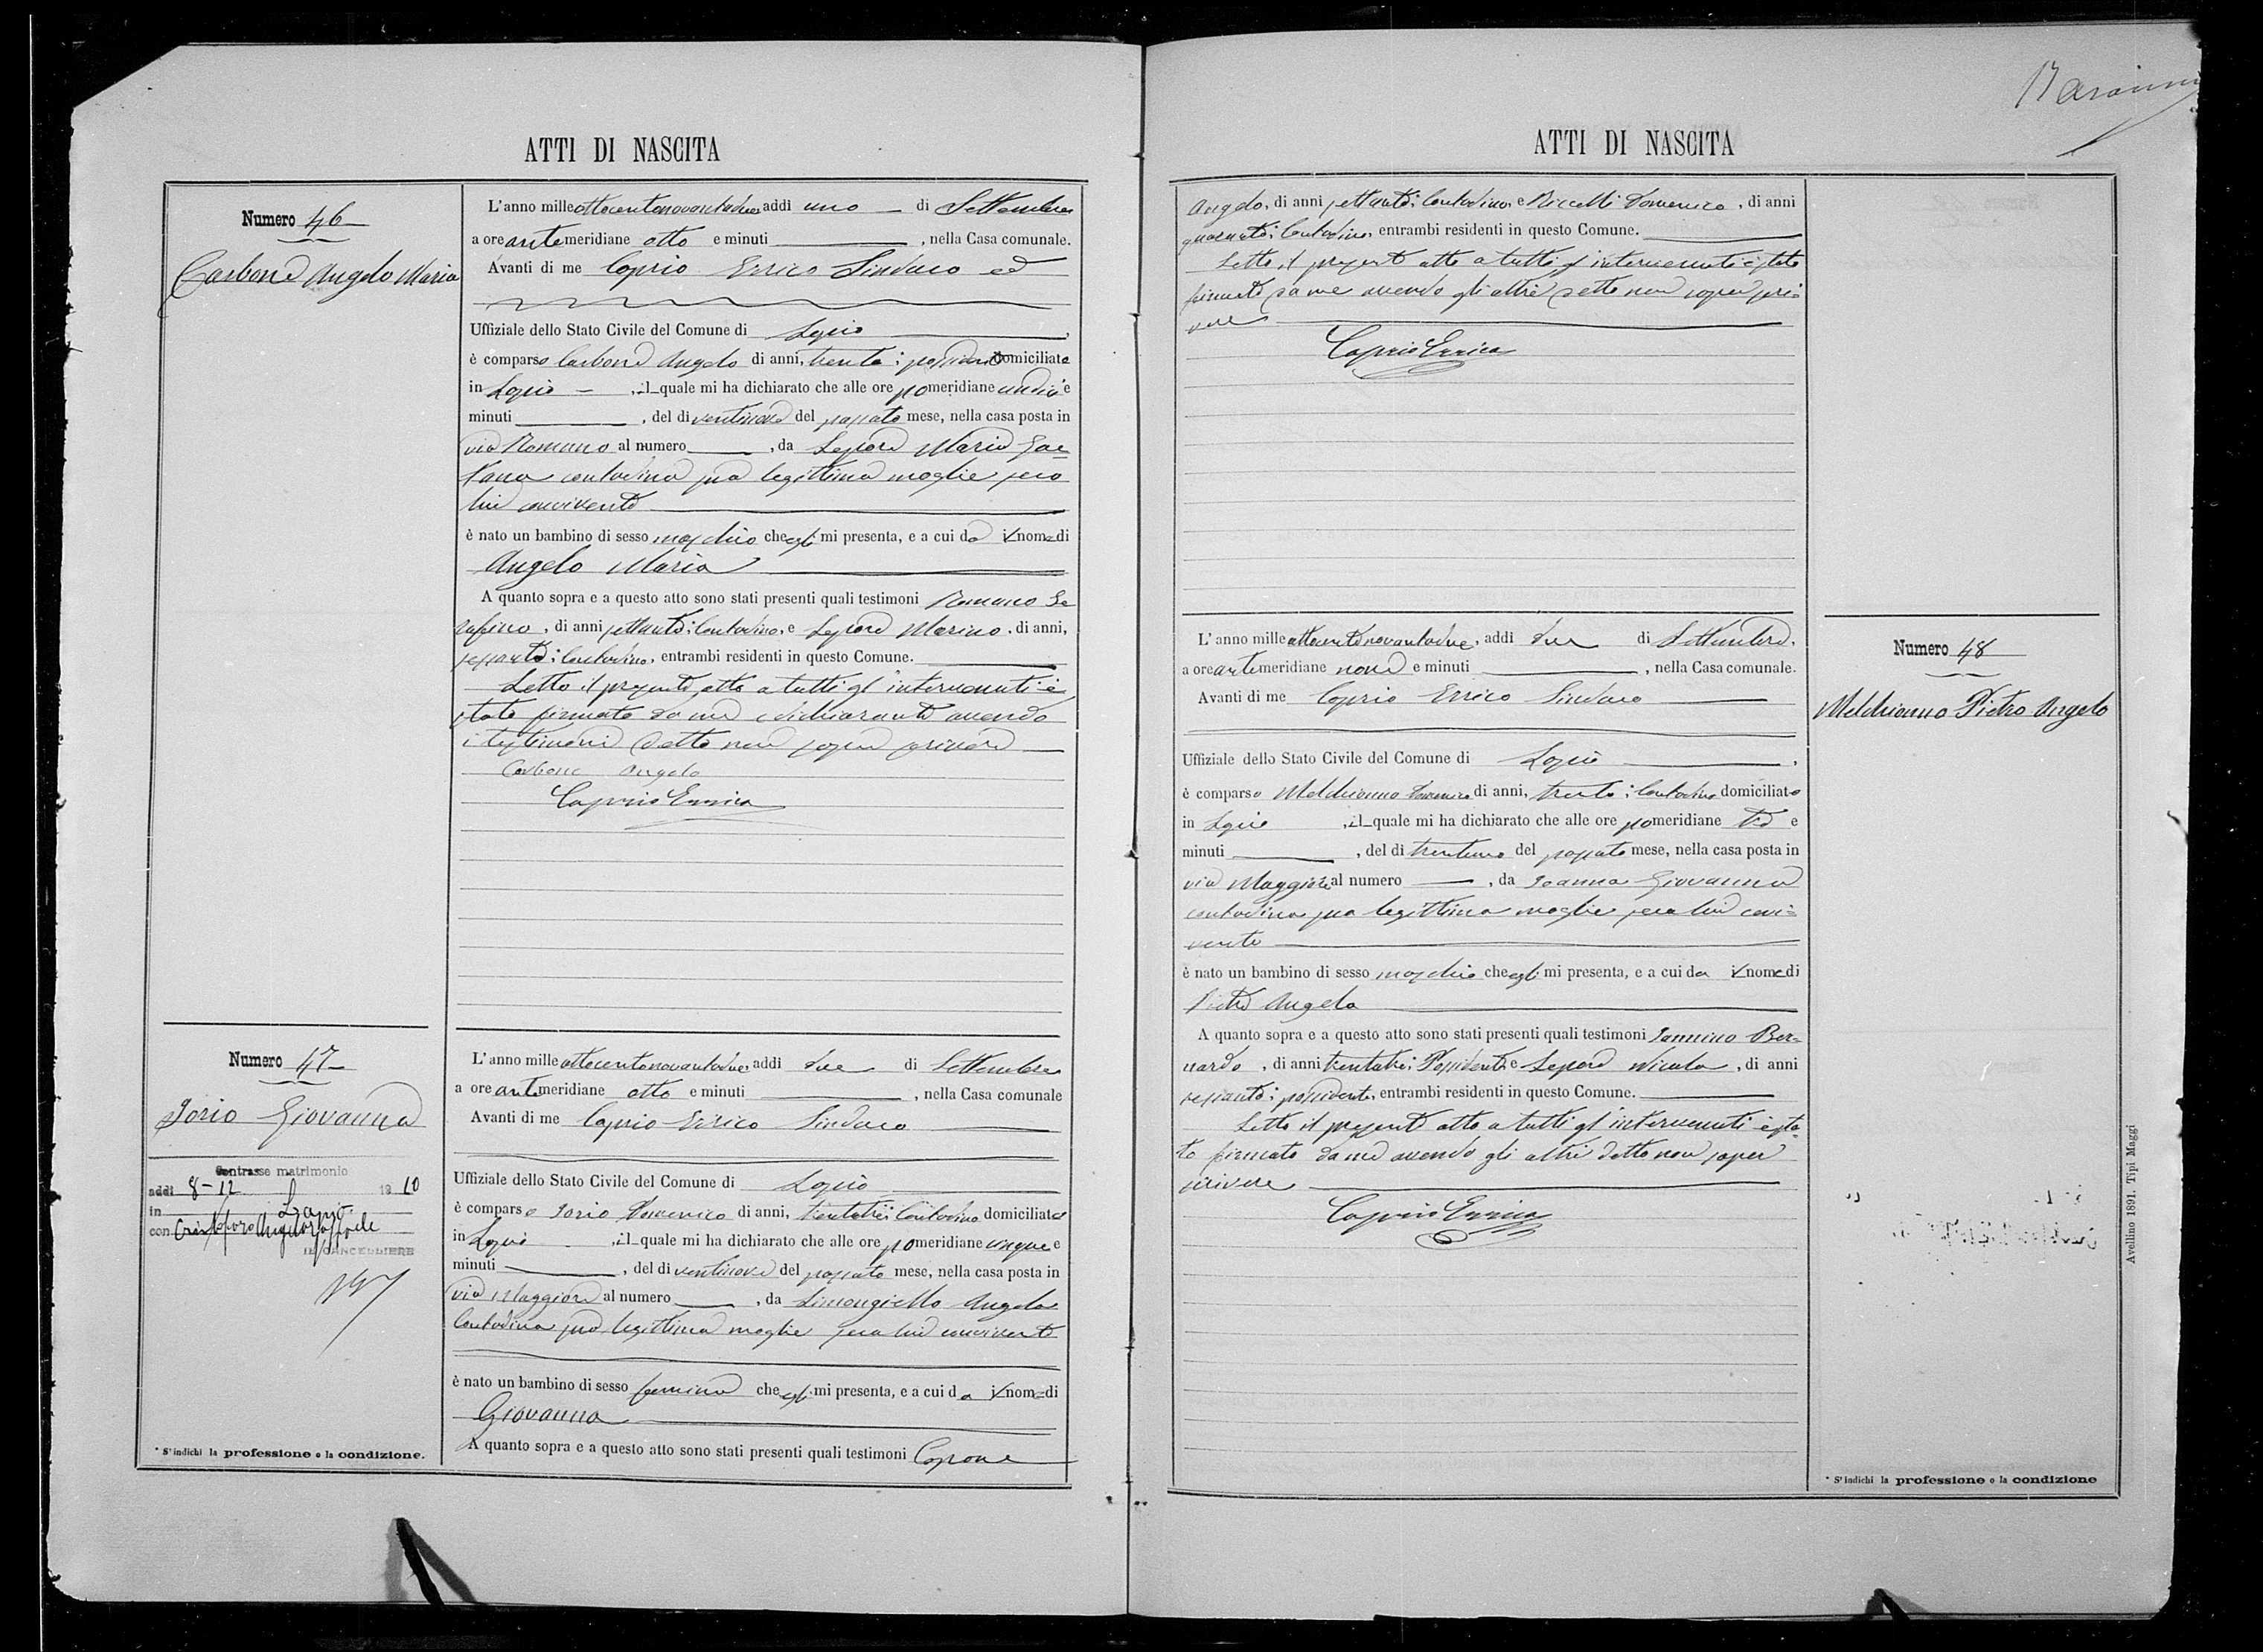 ATTI DI NASCITA
Numero 46
Carbone Angelo Maria
L'anno milleottocentonovantadue addì uno di Settembre
a ore antemeridiane otto e minuti , nella Casa comunale.
Avanti di me Caprio Errico Sindaco ed
Uffiziale dello Stato Civile del Comune di Lapio ,
è comparso Carbone Angelo di anni, trenta; possidente domiciliato
in Lapio , il quale mi ha dichiarato che alle ore pomeridiane undici e
minuti , del dì ventinove del passato mese, nella casa posta in
via Romano al numero , da Lepore Maria Gae=
tana contadina sua legittima moglie seco
lui convivente
è nato un bambino di sesso maschio che egli mi presenta, e a cui da il nome di
Angelo Maria
A quanto sopra e a questo atto sono stati presenti quali testimoni Romano Se
rafino, di anni settanta; Contadino, e Lepore Marino, di anni,
sessanta; Contadino, entrambi residenti in questo Comune.
Letto il presente atto a tutti gl'intervenuti è
stato firmato da me e dichiarante avendo
i testimoni detto non saper scrivere
Carbone Angelo
Caprio Errico
Numero 47
Iorio Giovanna
Contrasse matrimonio
addì 8-12 1910
in Lapio
con Cristoforo Angelo Raffaele
IL CANCELLIERE
L'anno milleottocentonovantadue addì due di Settembre
a ore antemeridiane otto e minuti , nella Casa comunale
Avanti di me Caprio Errico Sindaco
Uffiziale dello Stato Civile del Comune di Lapio
è comparso Iorio Domenico di anni, trentatre; Contadino domiciliato
in Lapio , il quale mi ha dichiarato che alle ore pomeridiane cinque e
minuti , del dì ventinove del passato mese, nella casa posta in
via Maggiore al numero , da Limongiello Angela
Contadina sua legittima moglie seco lui convivente
è nato un bambino di sesso femmina che egli mi presenta, e a cui da il nome di
Giovanna
A quanto sopra e a questo atto sono stati presenti quali testimoni Capone
* S'indichi la professione o la condizione.
ATTI DI NASCITA
Angelo, di anni settanta; Contadino, e Riccelli Domenico, di anni
quaranta; Contadino, entrambi residenti in questo Comune.
Letto il presente atto a tutti gl'intervenuti è stato
firmato da me avendo gli altri detto non saper scri=
vere
Caprio Errico
L'anno milleottocentonovantadue, addì due di Settembre,
a ore antemeridiane nove e minuti , nella Casa comunale.
Avanti di me Caprio Errico Sindaco
Uffiziale dello Stato Civile del Comune di Lapio ,
è comparso Meldrianno Domenico di anni, trenta; Contadino domiciliato
in Lapio , il quale mi ha dichiarato che alle ore pomeridiane tre e
minuti , del dì trentuno del passato mese, nella casa posta in
via Maggiore al numero , da Ioanna Giovanna
contadina sua legittima moglie seco lui convi=
vente
è nato un bambino di sesso maschio che egli mi presenta, e a cui da il nome di
Pietro Angelo
A quanto sopra e a questo atto sono stati presenti quali testimoni Iannino Ber=
nardo, di anni trentatre; Possidente e Lepore Nicola, di anni
sessanta; possidente, entrambi residenti in questo Comune.
Letto il presente atto a tutti gl'intervenuti è sta=
to firmato da me avendo gli altri detto non saper
scrivere
Caprio Errico
Numero 48
Meldrianno Pietro Angelo
* S'indichi la professione o la condizione
Avellino 1891. Tipi Maggi